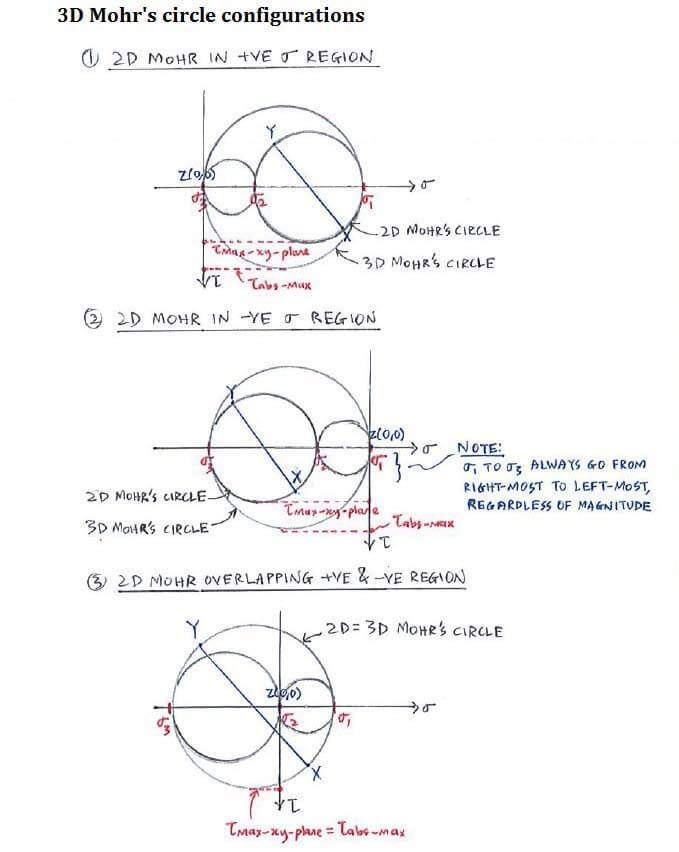 3D Mohr's circle configurations
① 2D MOHR IN +VE σ REGION
Y
Z(0,0)
σ
σ3 σ2 σ1
X
2D MOHR'S CIRCLE
τmax-xy-plane
3D MOHR'S CIRCLE
τ
τabs-max
② 2D MOHR IN -VE σ REGION
Y
Z(0,0)
σ
NOTE:
σ3 σ2 σ1
σ1 TO σ3 ALWAYS GO FROM
RIGHT-MOST TO LEFT-MOST,
REGARDLESS OF MAGNITUDE
X
2D MOHR'S CIRCLE
τmax-xy-plane
3D MOHR'S CIRCLE
τabs-max
τ
③ 2D MOHR OVERLAPPING +VE & -VE REGION
Y
2D = 3D MOHR'S CIRCLE
Z(0,0)
σ
σ3 σ2 σ1
X
τ
τmax-xy-plane = τabs-max